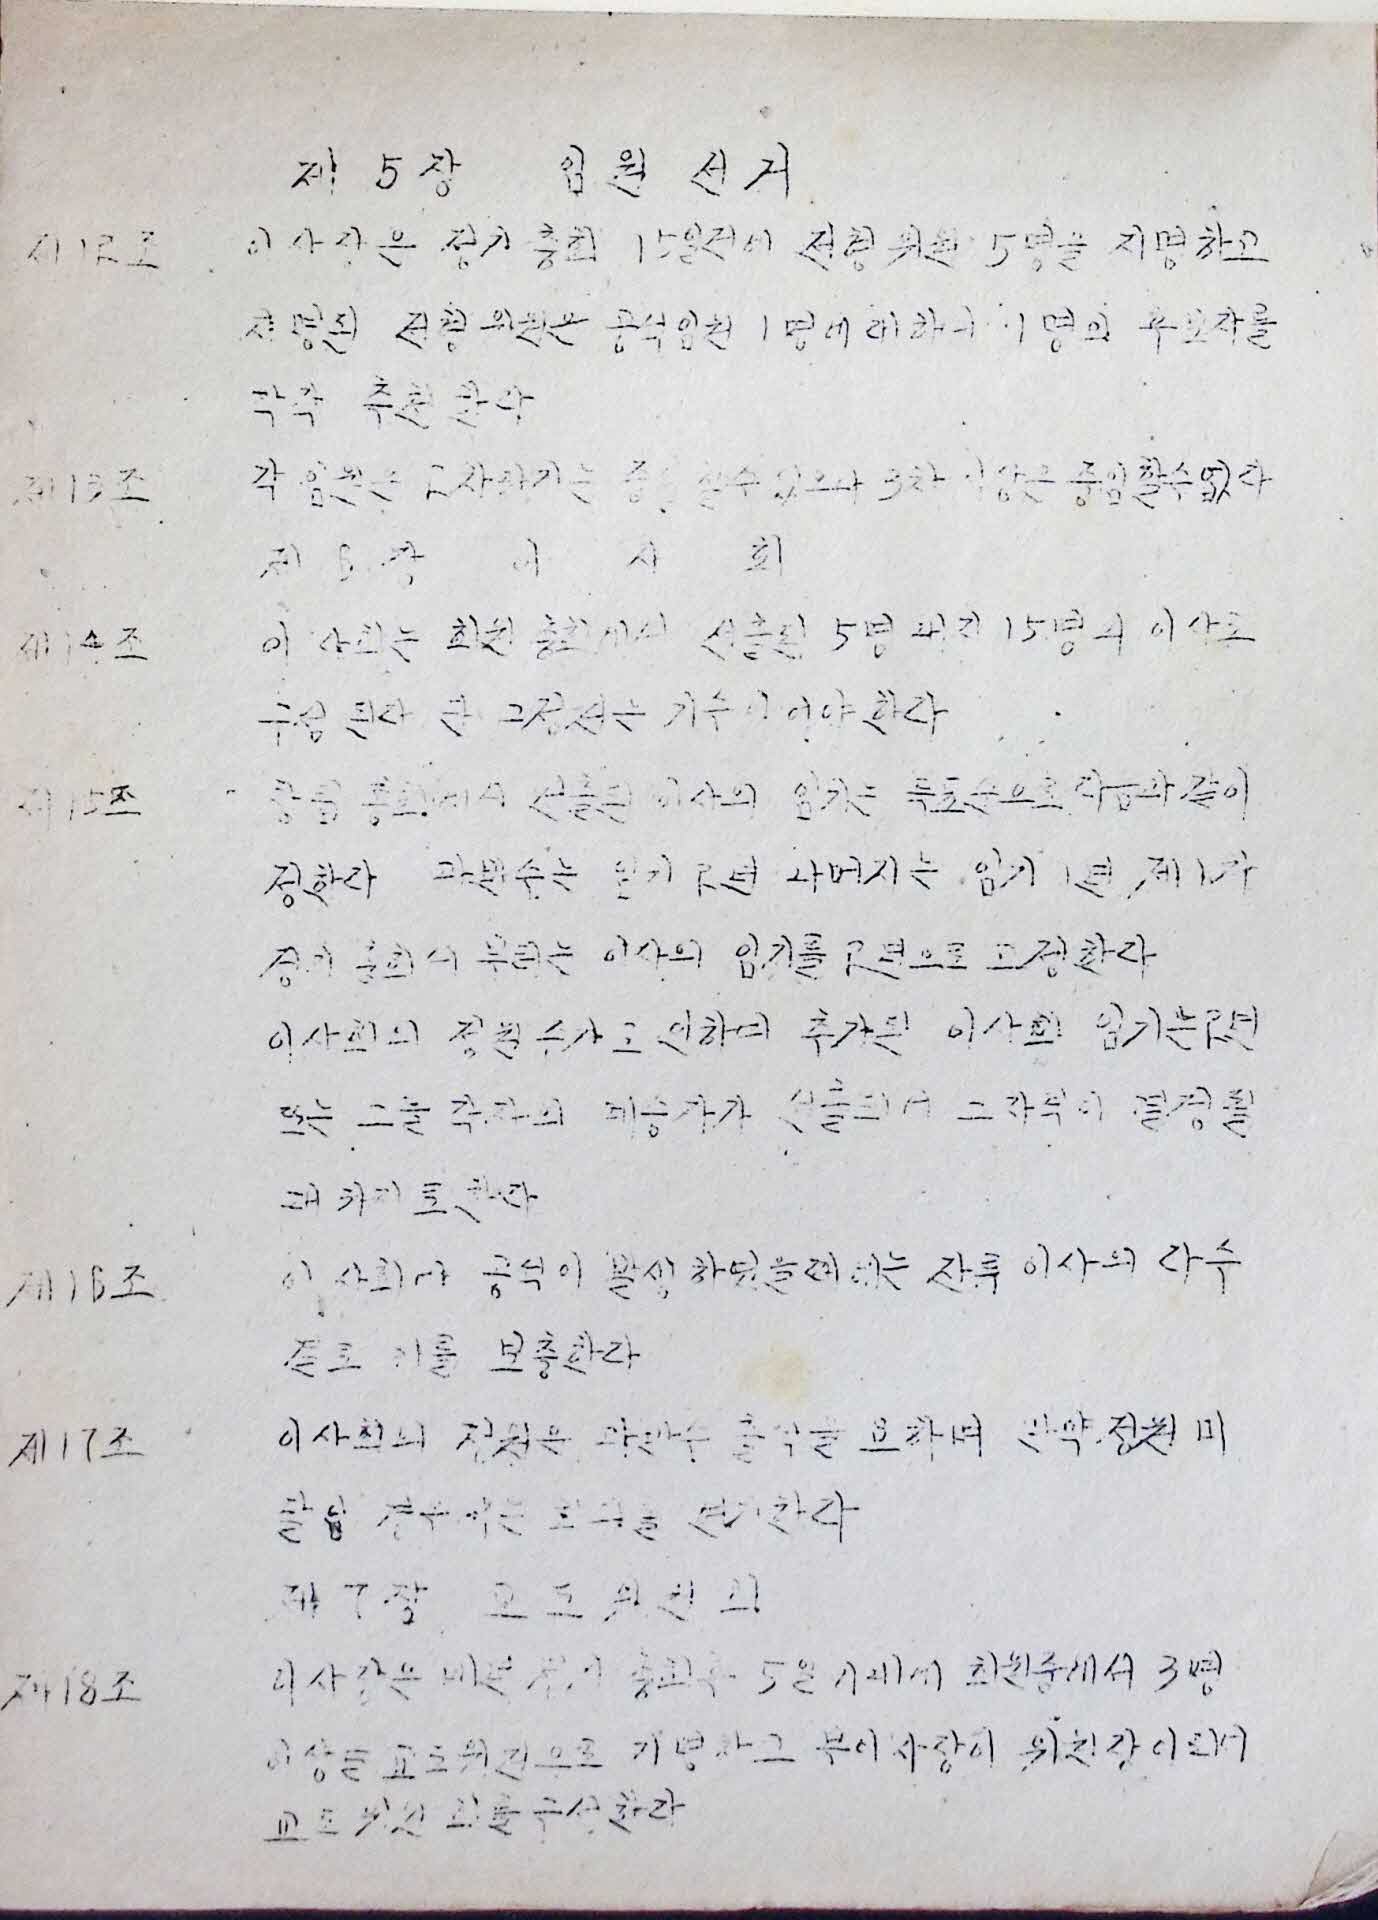 제 5 장 임원 선거
제12조 이사장은 정기총회 15일전에 전형위원 5명을 지명하고
전형위원은 공석임원 1명에 대하여 1명의 후보자를
각각 추천한다
제13조 각 임원은 2차까지는 중임할수 있으나 3차 이상은 중임할수 없다
제 6 장 이 사 회
제14조 이사회는 회원총회에서 선출된 5명 내지 15명의 이사로
구성된다 단 그 정원는 기수이어야 한다
제15조 창립총회에서 선출된 이사의 임기는 득표순으로 다음과 같이
정한다 과반수는 임기 2년 나머지는 임기 1년 제1차
정기총회서 부터는 이사의 임기를 2년으로 고정한다
이사회의 정원수가 추가된 이사의 임기는 2년
또는 그들 각자의 계승자가 선출되어
때까지로 한다
제16조 이사회나 공석이 발생하였을 때에는 잔류 이사의 다수
결로 이를 보충한다
제17조 이사회의 정원은 과반수 출석을 요하며 만약 정원 미
달일 경우에는 회의를 연기한다
제 7 장 교도위원회
제18조 이사장은 매년 정기총회후 5일 이내에 회원중에서 3명
이상을 교도위원으로 지명하고 부이사장이 위원장이 되어
교도위원회를 구성한다